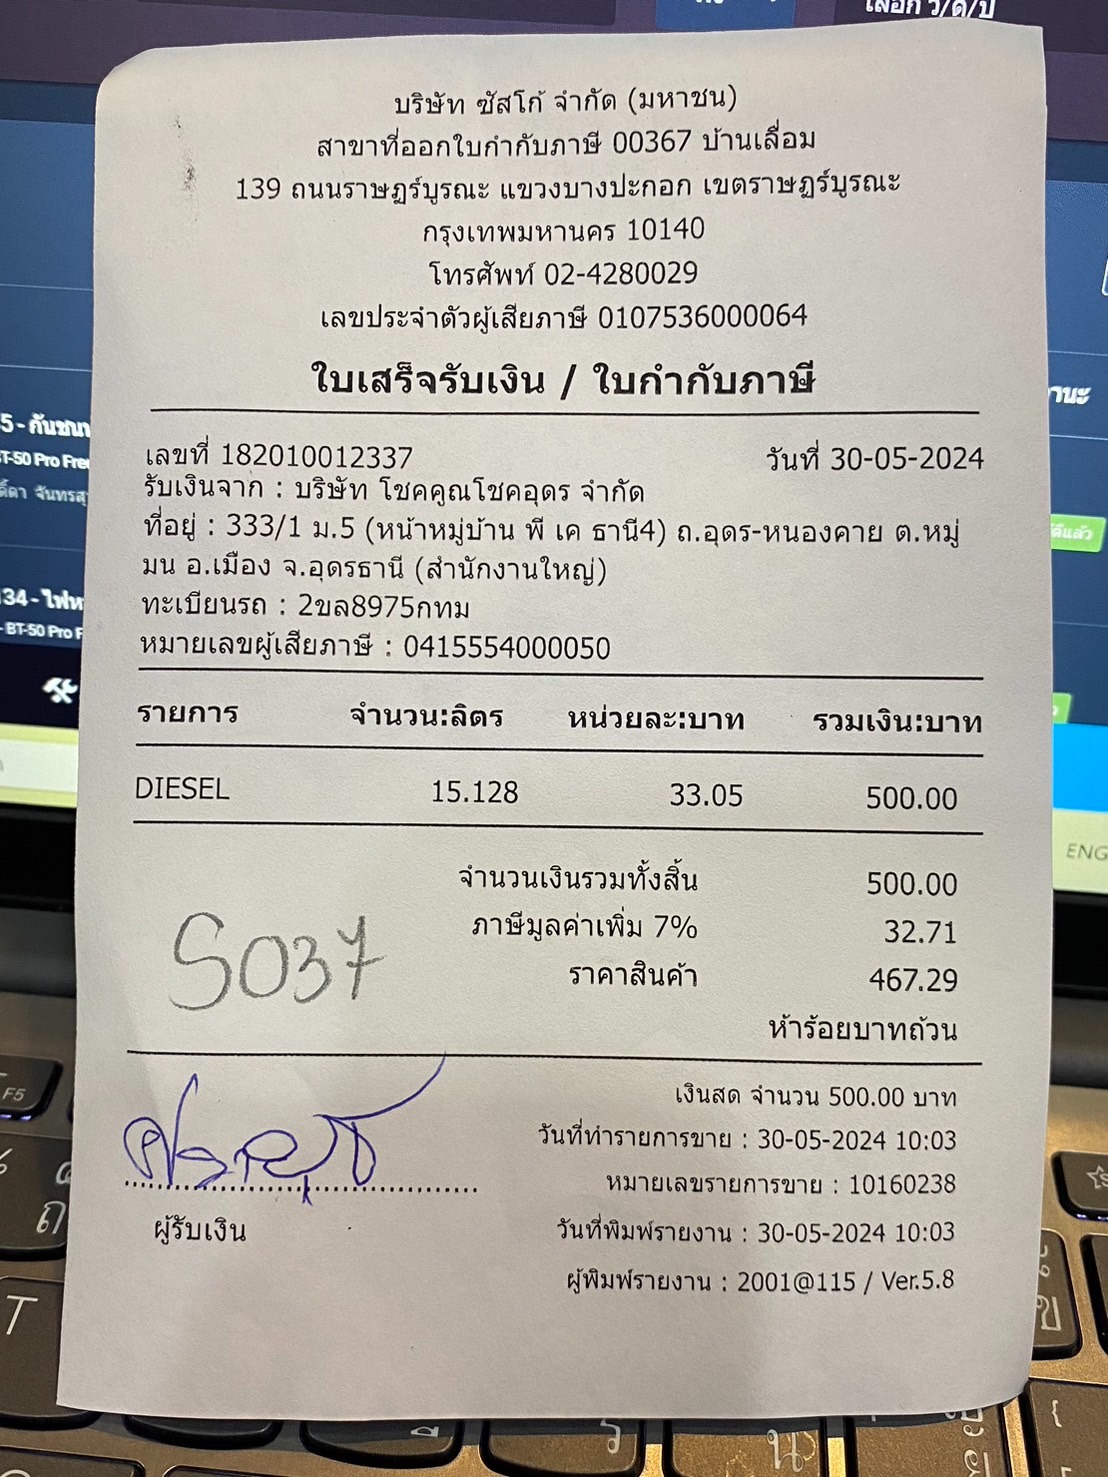 เลือก ว/ด/ป
บริษัท ซัสโก้ จำกัด (มหาชน)
สาขาที่ออกใบกำกับภาษี 00367 บ้านเลื่อม
139 ถนนราษฎร์บูรณะ แขวงบางปะกอก เขตราษฎร์บูรณะ
กรุงเทพมหานคร 10140
โทรศัพท์ 02-4280029
เลขประจำตัวผู้เสียภาษี 0107536000064
ใบเสร็จรับเงิน / ใบกำกับภาษี
เลขที่ 182010012337 วันที่ 30-05-2024
รับเงินจาก : บริษัท โชคคูณโชคอุดร จำกัด
ที่อยู่ : 333/1 ม.5 (หน้าหมู่บ้าน พี เค ธานี4) ถ.อุดร-หนองคาย ต.หมู่
มน อ.เมือง จ.อุดรธานี (สำนักงานใหญ่)
ทะเบียนรถ : 2ขล8975กทม
หมายเลขผู้เสียภาษี : 0415554000050
รายการ จำนวน:ลิตร หน่วยละ:บาท รวมเงิน:บาท
DIESEL 15.128 33.05 500.00
จำนวนเงินรวมทั้งสิ้น 500.00
ภาษีมูลค่าเพิ่ม 7% 32.71
ราคาสินค้า 467.29
S037
ห้าร้อยบาทถ้วน
เงินสด จำนวน 500.00 บาท
วันที่ทำรายการขาย : 30-05-2024 10:03
หมายเลขรายการขาย : 10160238
ผู้รับเงิน
วันที่พิมพ์รายงาน : 30-05-2024 10:03
ผู้พิมพ์รายงาน : 2001@115 / Ver.5.8
ENG
F5
ถ
T
ข
ร
น